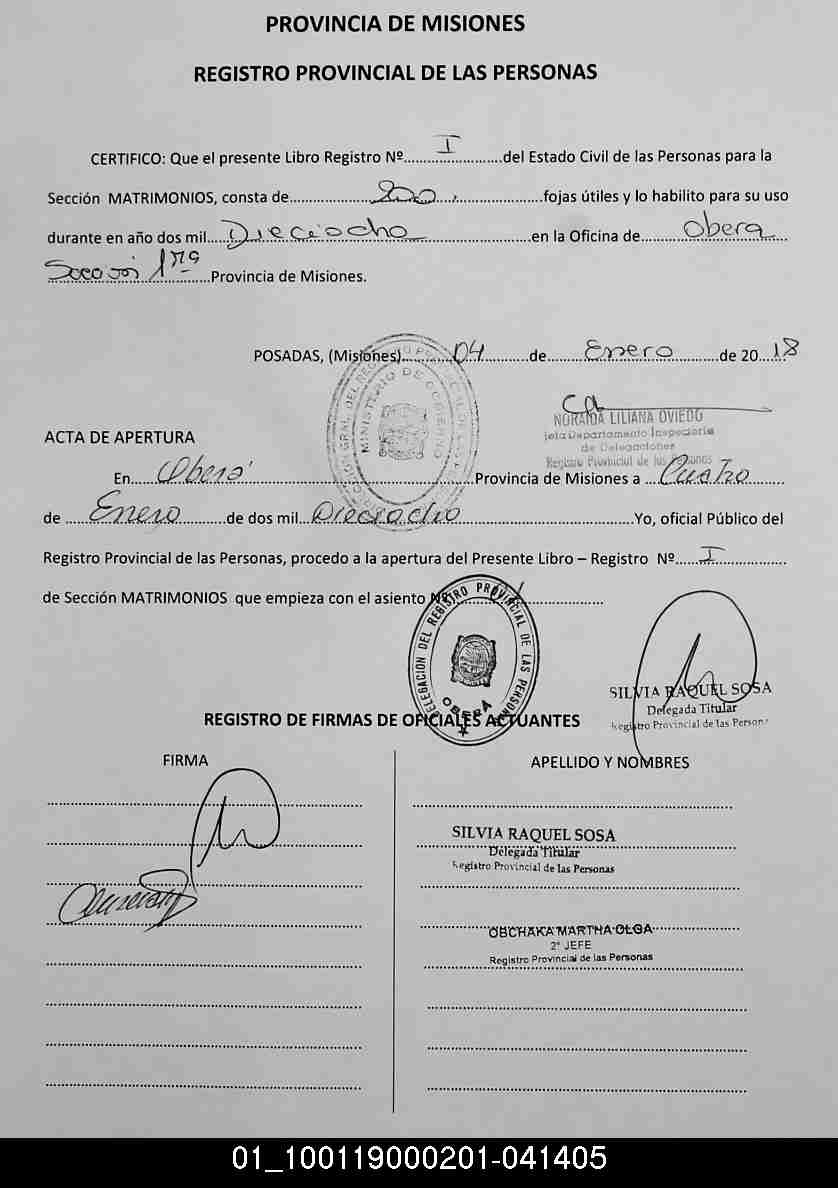 PROVINCIA DE MISIONES
REGISTRO PROVINCIAL DE LAS PERSONAS
CERTIFICO: Que el presente Libro Registro Nº I del Estado Civil de las Personas para la
Sección MATRIMONIOS, consta de 200 fojas útiles y lo habilito para su uso
durante en año dos mil Dieciocho en la Oficina de Obera
1ra Provincia de Misiones.
POSADAS, (Misiones) 04 de Enero de 2018
NORAIDA LILIANA OVIEDO
Jefa Departamento Inspectoría
de Delegaciones
Registro Provincial de las Personas
ACTA DE APERTURA
En Oberá Provincia de Misiones a Cuatro
de Enero de dos mil Dieciocho Yo, oficial Público del
Registro Provincial de las Personas, procedo a la apertura del Presente Libro – Registro Nº I
de Sección MATRIMONIOS que empieza con el asiento Nº
DELEGACION DEL REGISTRO PROVINCIAL DE LAS PERSONAS
OBERÁ
MINISTERIO DE GOBIERNO
SILVIA RAQUEL SOSA
Delegada Titular
Registro Provincial de las Person
REGISTRO DE FIRMAS DE OFICIALES ACTUANTES
FIRMA APELLIDO Y NOMBRES
SILVIA RAQUEL SOSA
Delegada Titular
Registro Provincial de las Personas
OBCHAKA MARTHA OLGA
2° JEFE
Registro Provincial de las Personas
01_100119000201-041405